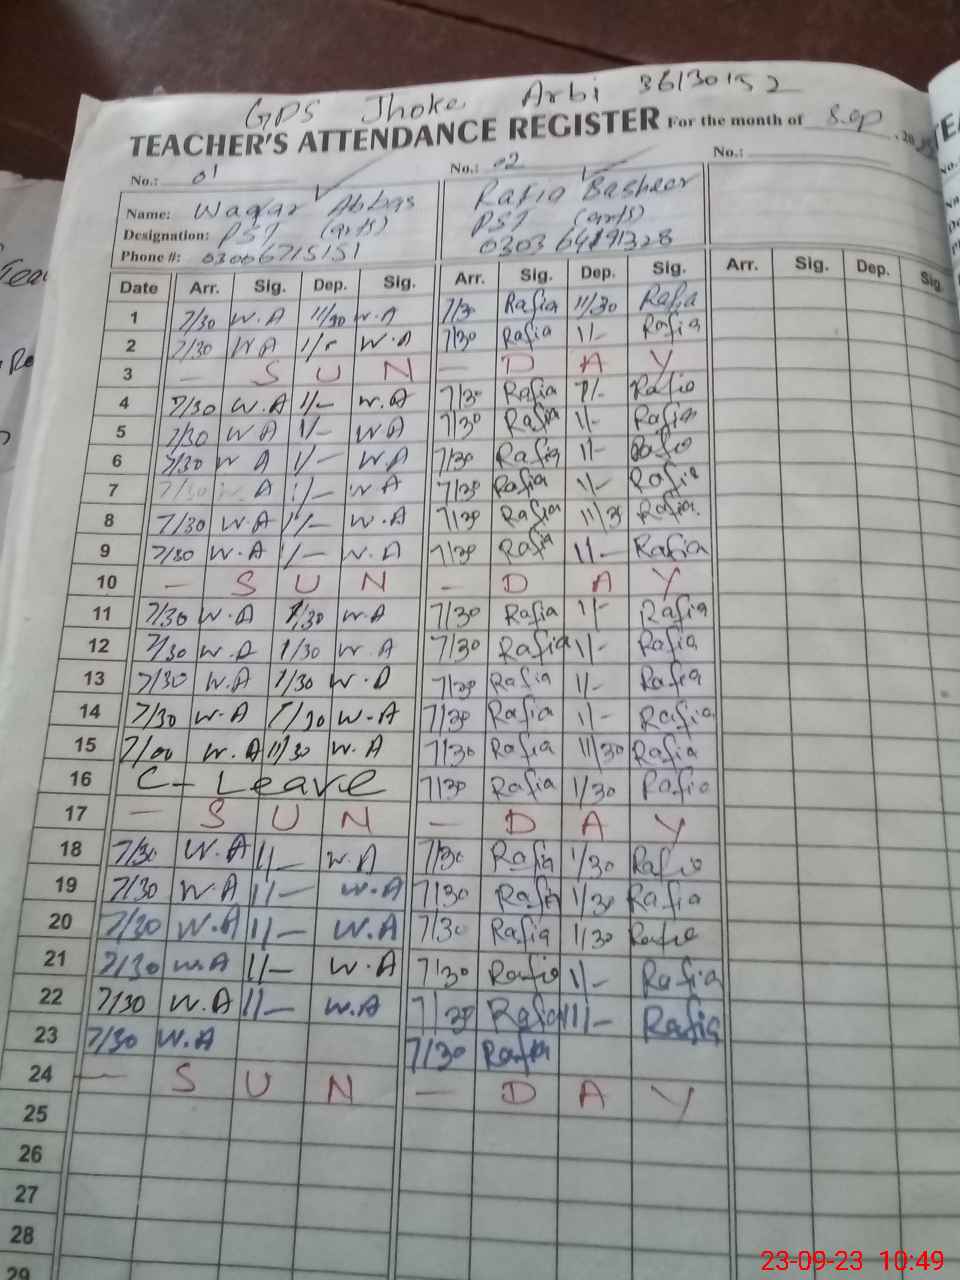 GPS Jhoke Arbi 36130152
TEACHER'S ATTENDANCE REGISTER For the month of Sep , 20
No.: 01 No.: 02 No.:
Name: Waqar Abbas Rafia Basheer
Designation: PST (arts) PST (arts)
Phone #: 03006715151 0303 64191328
Date Arr. Sig. Dep. Sig. Arr. Sig. Dep. Sig. Arr. Sig. Dep. Sig.
1 7/30 W.A 11/30 W.A 7/30 Rafia 11/30 Rafia
2 7/30 WA W.A 7/30 Rafia 1/- Rafia
3 — S U N — D A Y
4 7/30 W.A 1/- W.A 7/30 Rafia Rafia
5 7/30 WA 1/- WA 7/30 Rafia 1/- Rafia
6 7/30 W A 1/- WA 7/30 Rafia 1/- Rafia
7 7/30 W. A 1/- WA 7/30 Rafia 1/- Rafia
8 7/30 W.A 1/- W.A 7/30 Rafia 11/30 Rafia.
9 7/30 W.A 1/- W.A 7/30 Rafia 1/- Rafia
10 — S U N — D A Y
11 7/30 W.A 1/30 W.A 7/30 Rafia 1/- Rafia
12 7/30 W.A 1/30 W.A 7/30 Rafia 1/- Rafia
13 7/30 W.A 1/30 W.A 7/30 Rafia 1/- Rafia
14 7/30 W-A 1/30 W-A 7/30 Rafia 1/- Rafia
15 7/00 W.A 11/30 W.A 7/30 Rafia 11/30 Rafia
16 C- Leave 7/30 Rafia 1/30 Rafia
17 — S U N — D A Y
18 7/30 W.A 1/- W.A 7/30 Rafia 1/30 Rafia
19 7/30 W.A 1/- W.A 7/30 Rafia 1/30 Rafia
20 7/30 W.A 1/- W.A 7/30 Rafia 1/30 Rafia
21 7/30 W.A 1/- W.A 7/30 Rafia 1/- Rafia
22 7/30 W.A 1/- W.A 7/30 Rafia 11/- Rafia
23 7/30 W.A 7/30 Rafia
24 — S U N — D A Y
25
26
27
28
29
23-09-23 10:49